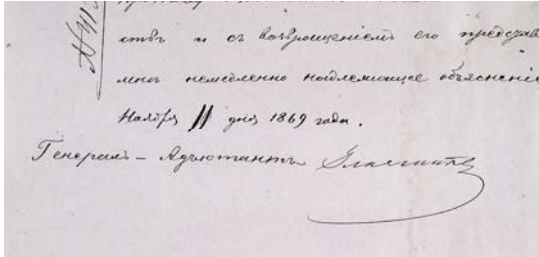 ствѣ и съ возвращеніемъ его представ
мнѣ немедленно надлежащее объясненіе
Ноября 11 дня 1869 года.
Генералъ – Адъютантъ